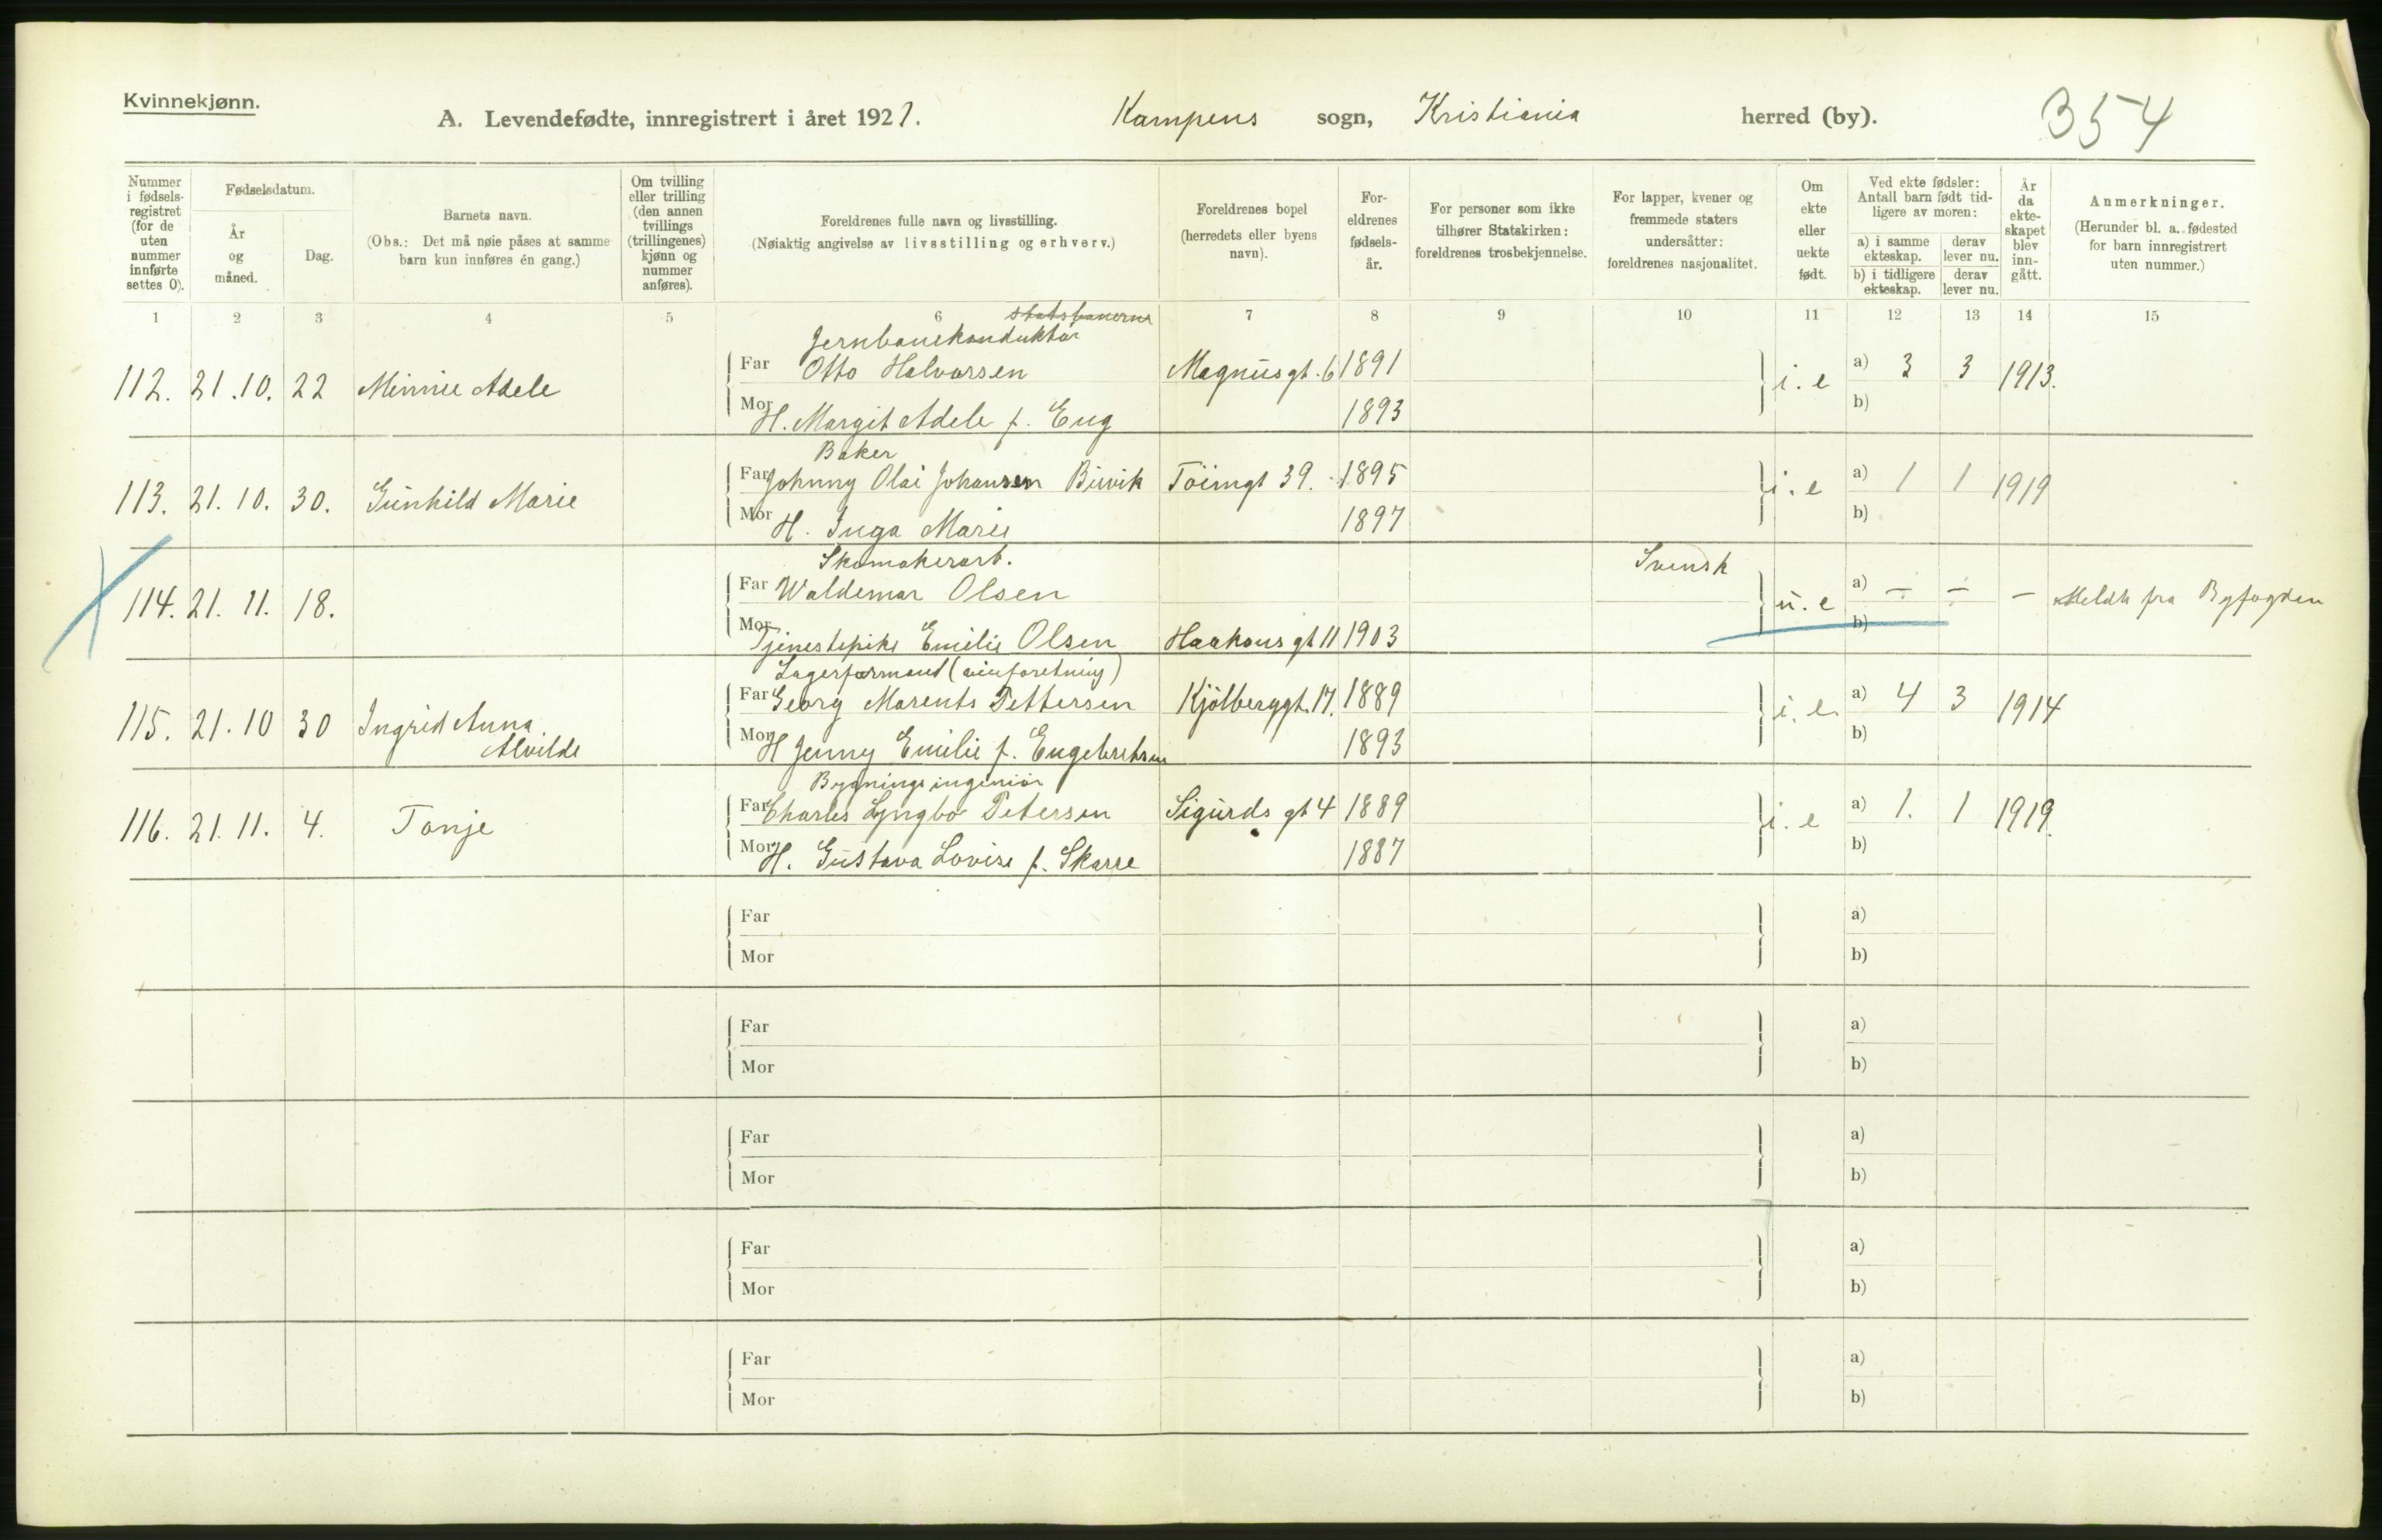 Kvinnekjønn.
A. Levendefødte, innregistrert i året 1921. Kampens sogn, Kristiania herred (by). 354
Nummer i fødsels-registret (for de uten nummer innførte settes 0).
Fødselsdatum.
År og måned.
Dag.
Barnets navn.
(Obs.: Det må nøie påses at samme barn kun innføres én gang.)
Om tvilling eller trilling (den annen tvillings (trillingenes) kjønn og nummer anføres).
Foreldrenes fulle navn og livsstilling.
(Nøiaktig angivelse av livsstilling og erhverv.)
Foreldrenes bopel (herredets eller byens navn).
For-eldrenes fødsels-år.
For personer som ikke tilhører Statskirken: foreldrenes trosbekjennelse.
For lapper, kvener og fremmede staters undersåtter: foreldrenes nasjonalitet.
Om ekte eller uekte født.
Ved ekte fødsler: Antall barn født tid-ligere av moren:
a) i samme ekteskap. derav lever nu.
b) i tidligere ekteskap. derav lever nu.
År da ekte-skapet blev inn-gått.
Anmerkninger.
(Herunder bl. a. fødested for barn innregistrert uten nummer.)
1 2 3 4 5 6 7 8 9 10 11 12 13 14 15
statsbanerne
Jernbanekonduktør
112. 21.10. 22 Minnie Adele Far Otto Halvorsen Magnusgt. 6 1891 i. e a) 3 3 1913.
Mor H. Margit Adele f. Eng 1893 b)
Baker
113. 21. 10. 30. Gunhild Marie Far Johnny Olai Johansen Birvik Töiengt 39. 1895 i. e a) 1 1 1919
Mor H. Inga Marie 1897 b)
Skomakerarb. Svensk
114. 21. 11. 18. Far Waldemar Olsen u. e a) — — — Meldt fra Byfogden
Mor Tjenestepike Emilie Olsen Haakons gt 11 1903 b)
Lagerformand (vinforetning)
115. 21. 10 30 Ingrid Anna Far Georg Marents Pettersen Kjölberggt. 17. 1889 i. e. a) 4 3 1914
Alvilde Mor H Jenny Emilie f. Engebretsen 1893 b)
Bygningsingeniör
116. 21. 11. 4. Tonje Far Charles Lyngbo Petersen Sigurds gt 4 1889 i. e a) 1. 1 1919.
Mor H. Gustava Lovise f. Skarre 1887 b)
Far a)
Mor b)
Far a)
Mor b)
Far a)
Mor b)
Far a)
Mor b)
Far a)
Mor b)